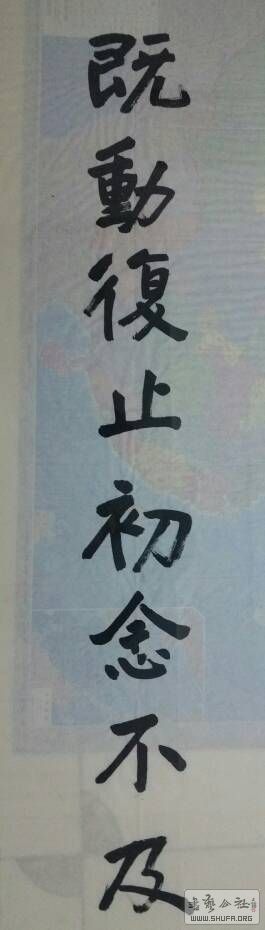 既動復止初念不及
書藝公社
WWW.SHUFA.ORG